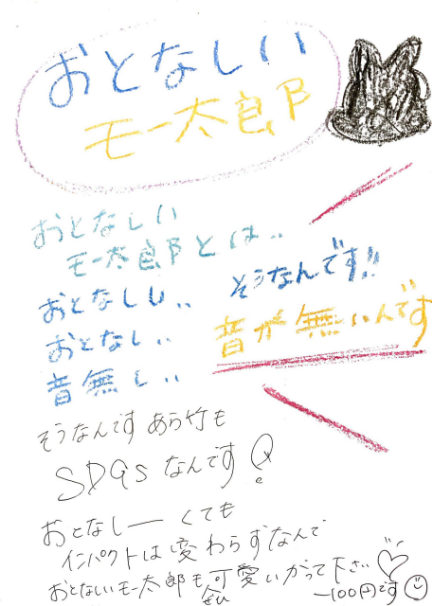 おとなしい
モー太郎
おとなしい
モー太郎とは..
おとなしい..
おとなしい..
音無しい..
そうなんです!!
音が無いんです
そうなんです あら竹も
SDGsなんです
おとなしーくても
インパクトは変わらずなんで
おとないモー太郎も可愛いがって下さい♡
ぜひ
ー100円です☺